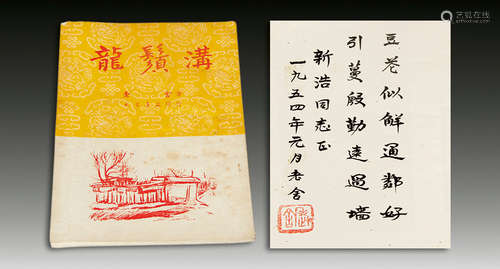 龍鬚溝
豆花似解通鄰好
引蔓殷勤遠過墻
新浩同志正
一九五四年元月老舍
老舍
艺狐在线